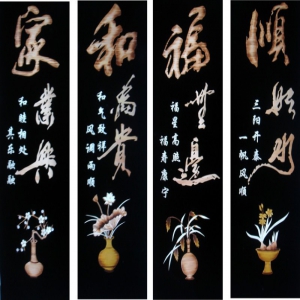 家業興
和睦相处
其乐融融
和為貴
和气致祥
风调雨顺
福無邊
福星高照
福寿康宁
順
三阳开泰
一帆风顺